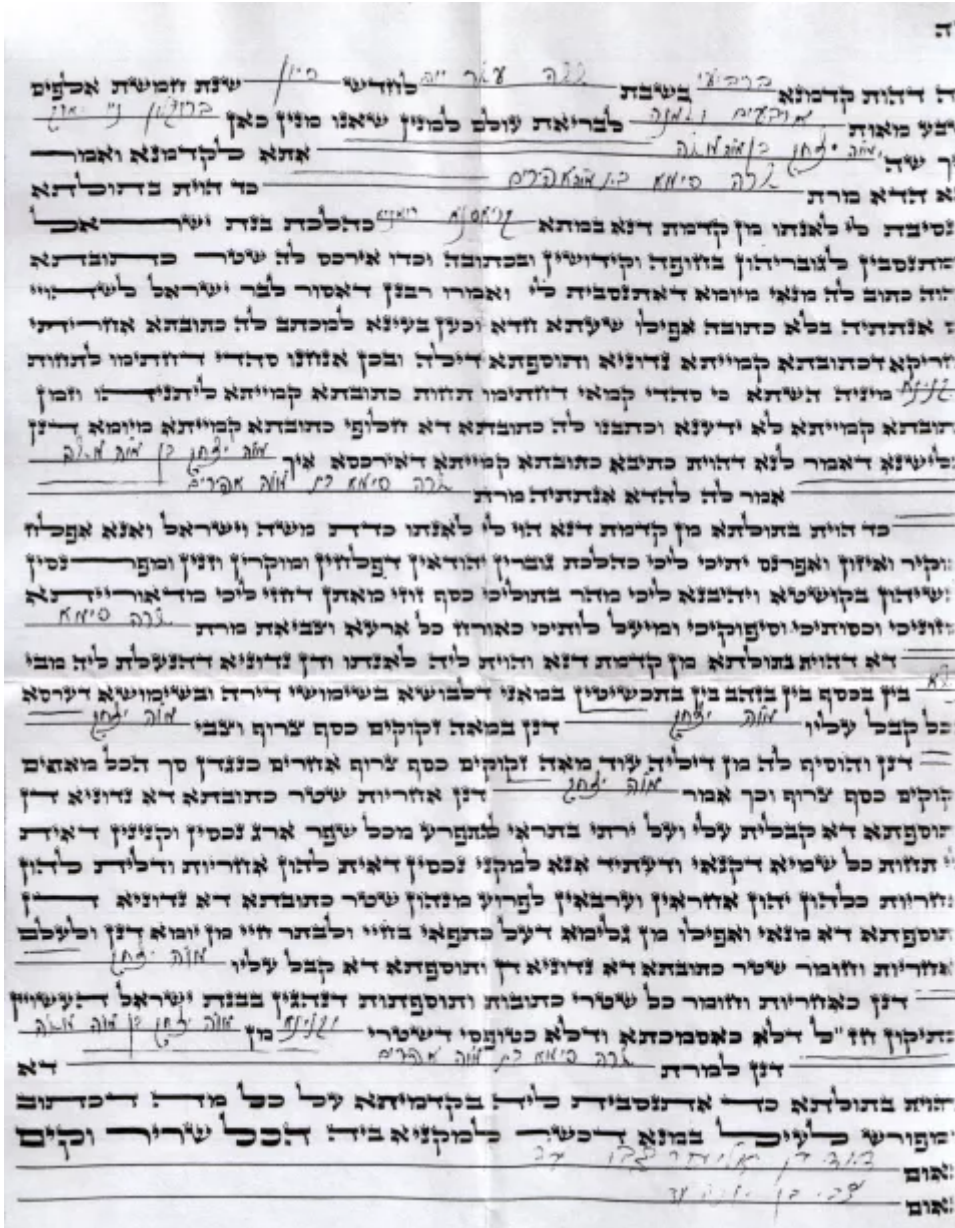 דהות קדמנא ברביעי בשבת לחדש סיון שנת חמשת אלפים
מאות ארבעים לבריאת עולם למנין שאנו מנין כאן ברוקלין
יצחק בן אתא לקדמנא ואמר
הדא מרת שרה סימא בת אפרים כד הוית בתולתא
נסיבת לי לאנתו מן קדמת דנא במתא כהלכת בנת ישראל
דמתנסבין לגובריהון בחופה וקידושין ובכתובה וכדו אירכס לה שטר כתובתא
כתוב לה מנאי מיומא דאתנסבית לי ואמרו רבנן דאסור לבר ישראל לשהויי
אנתתיה בלא כתובה אפילו שעתא חדא וכען בעינא למכתב לה כתובתא אחריתי
דכתובתא קמייתא נדוניא ותוספתא דילה ובכן אנחנו סהדי דחתימו לתחות
מיניה השתא כי סהדי קמאי דחתימו תחות כתובתא קמייתא ליתניהו וזמן
כתובתא קמייתא לא ידענא וכתבנו לה כתובתא דא חלופי כתובתא קמייתא מיומא דנן
דאמר לנא דהוית כתיבא כתובתא קמייתא דאירכסא איך משה יצחק בן משה
אמר לה להדא אנתתיה מרת שרה סימא בת משה אפרים
כד הוית בתולתא מן קדמת דנא הוי לי לאנתו כדת משה וישראל ואנא אפלח
ואוקיר ואיזון ואפרנס יתיכי ליכי כהלכת גוברין יהודאין דפלחין ומוקרין וזנין ומפרנסין
לנשיהון בקושטא ויהיבנא ליכי מהר בתוליכי כסף זוזי מאתן דחזי ליכי מדאורייתא
ומזוניכי וכסותיכי וסיפוקיכי ומיעל לותיכי כאורח כל ארעא וצביאת מרת שרה סימא
דא דהוית בתולתא מן קדמת דנא והוית ליה לאנתו ודן נדוניא דהנעלת ליה מבי
בין בכסף בין בזהב בין בתכשיטין במאני דלבושא בשימושי דירה ובשימושא דערסא
הכל קבל עליו משה יצחק דנן במאה זקוקים כסף צרוף וצבי משה יצחק
דנן והוסיף לה מן דיליה עוד מאה זקוקים כסף צרוף אחרים כנגדן סך הכל מאתים
זקוקים כסף צרוף וכך אמר משה יצחק דנן אחריות שטר כתובתא דא נדוניא דן
ותוספתא דא קבלית עלי ועל ירתי בתראי להתפרע מכל שפר ארג נכסין וקנינין דאית
לי תחות כל שמיא דקנאי ודעתיד אנא למקני נכסין דאית להון אחריות ודלית להון
אחריות כלהון יהון אחראין וערבאין לפרוע מנהון שטר כתובתא דא נדוניא דן
ותוספתא דא מנאי ואפילו מן גלימא דעל כתפאי בחיי ולבתר חיי מן יומא דנן ולעלם
ואחריות וחומר שטר כתובתא דא נדוניא דן ותוספתא דא קבל עליו משה יצחק
דנן כאחריות וחומר כל שטרי כתובות ותוספתות דנהגין בבנת ישראל העשויין
כתיקון חז"ל דלא כאסמכתא ודלא כטופסי דשטרי וקנינא מן משה יצחק בן משה
דנן למרת שרה סימא בת משה אפרים דא
דהוית בתולתא כד אתנסבית ליה בקדמיתא על כל מה דכתוב
ומפורש לעיל במנא דכשר למקניא ביה הכל שריר וקים
נאום דוד בן עד
נאום צבי בן עד